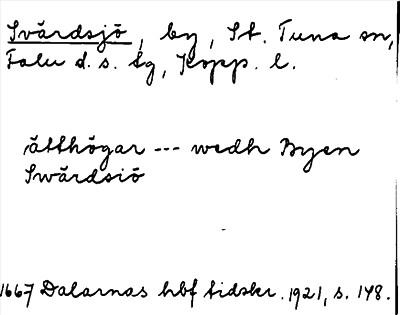 Svärdsjö, by, St. Tuna sn,
Falu d. s. tg, Kopp. l.
ätthögar --- wedh Byen
Swärdsiö
1667 Dalarnas hbf tidskr. 1921, s. 148.